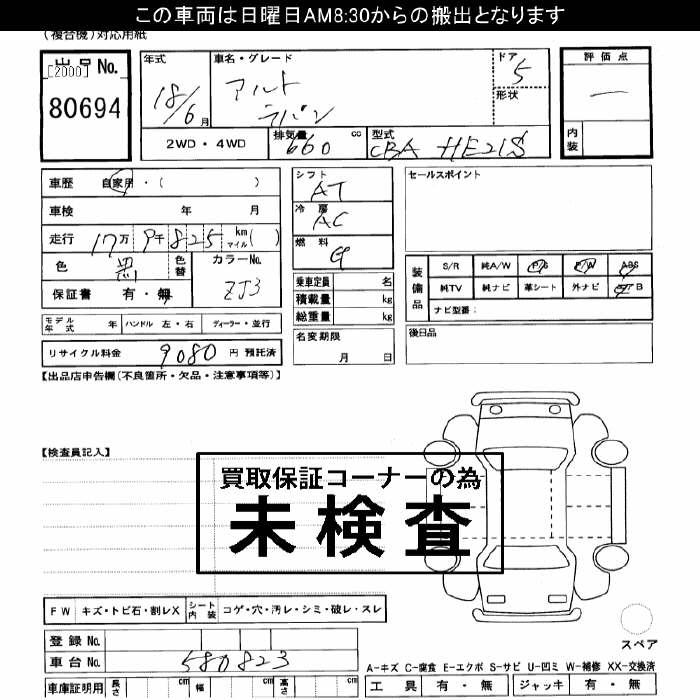 この車両は日曜日AM8:30からの搬出となります
(複合機)対応用紙
出品 No.
[2000]
80694
年式
18/6月
車名・グレード
アルト
ラパン
ドア
5
形状
評価点
―
内装
2WD・4WD
排気量
660
cc
型式
CBA HE21S
車歴 自家用・( )
車検 年 月
走行 17万 9千 825 km マイル( )
色 黒 色替
カラーNo.
ZJ3
保証書 有・無
モデル年式 年 ハンドル 左・右 ディーラー・並行
リサイクル料金 9080 円 預託済
シフト
AT
冷房
AC
燃料
G
乗車定員 名
積載量 kg
総重量 kg
名変期限
月 日
セールスポイント
装備品
S/R 純A/W P/S P/W ABS
純TV 純ナビ 革シート 外ナビ エアB
ナビ型番:
後日品
【出品店申告欄(不良箇所・欠品・注意事項等)】
【検査員記入】
買取保証コーナーの為
未検査
FW キズ・トビ石・割レX シート内装 コゲ・穴・汚レ・シミ・破レ・スレ
登録 No.
車台 No. 580823
車庫証明用 長さ cm 幅 cm 高さ cm
スペア
A-キズ C-腐食 E-エクボ S-サビ U-凹ミ W-補修 XX-交換済
工具 有・無 ジャッキ 有・無